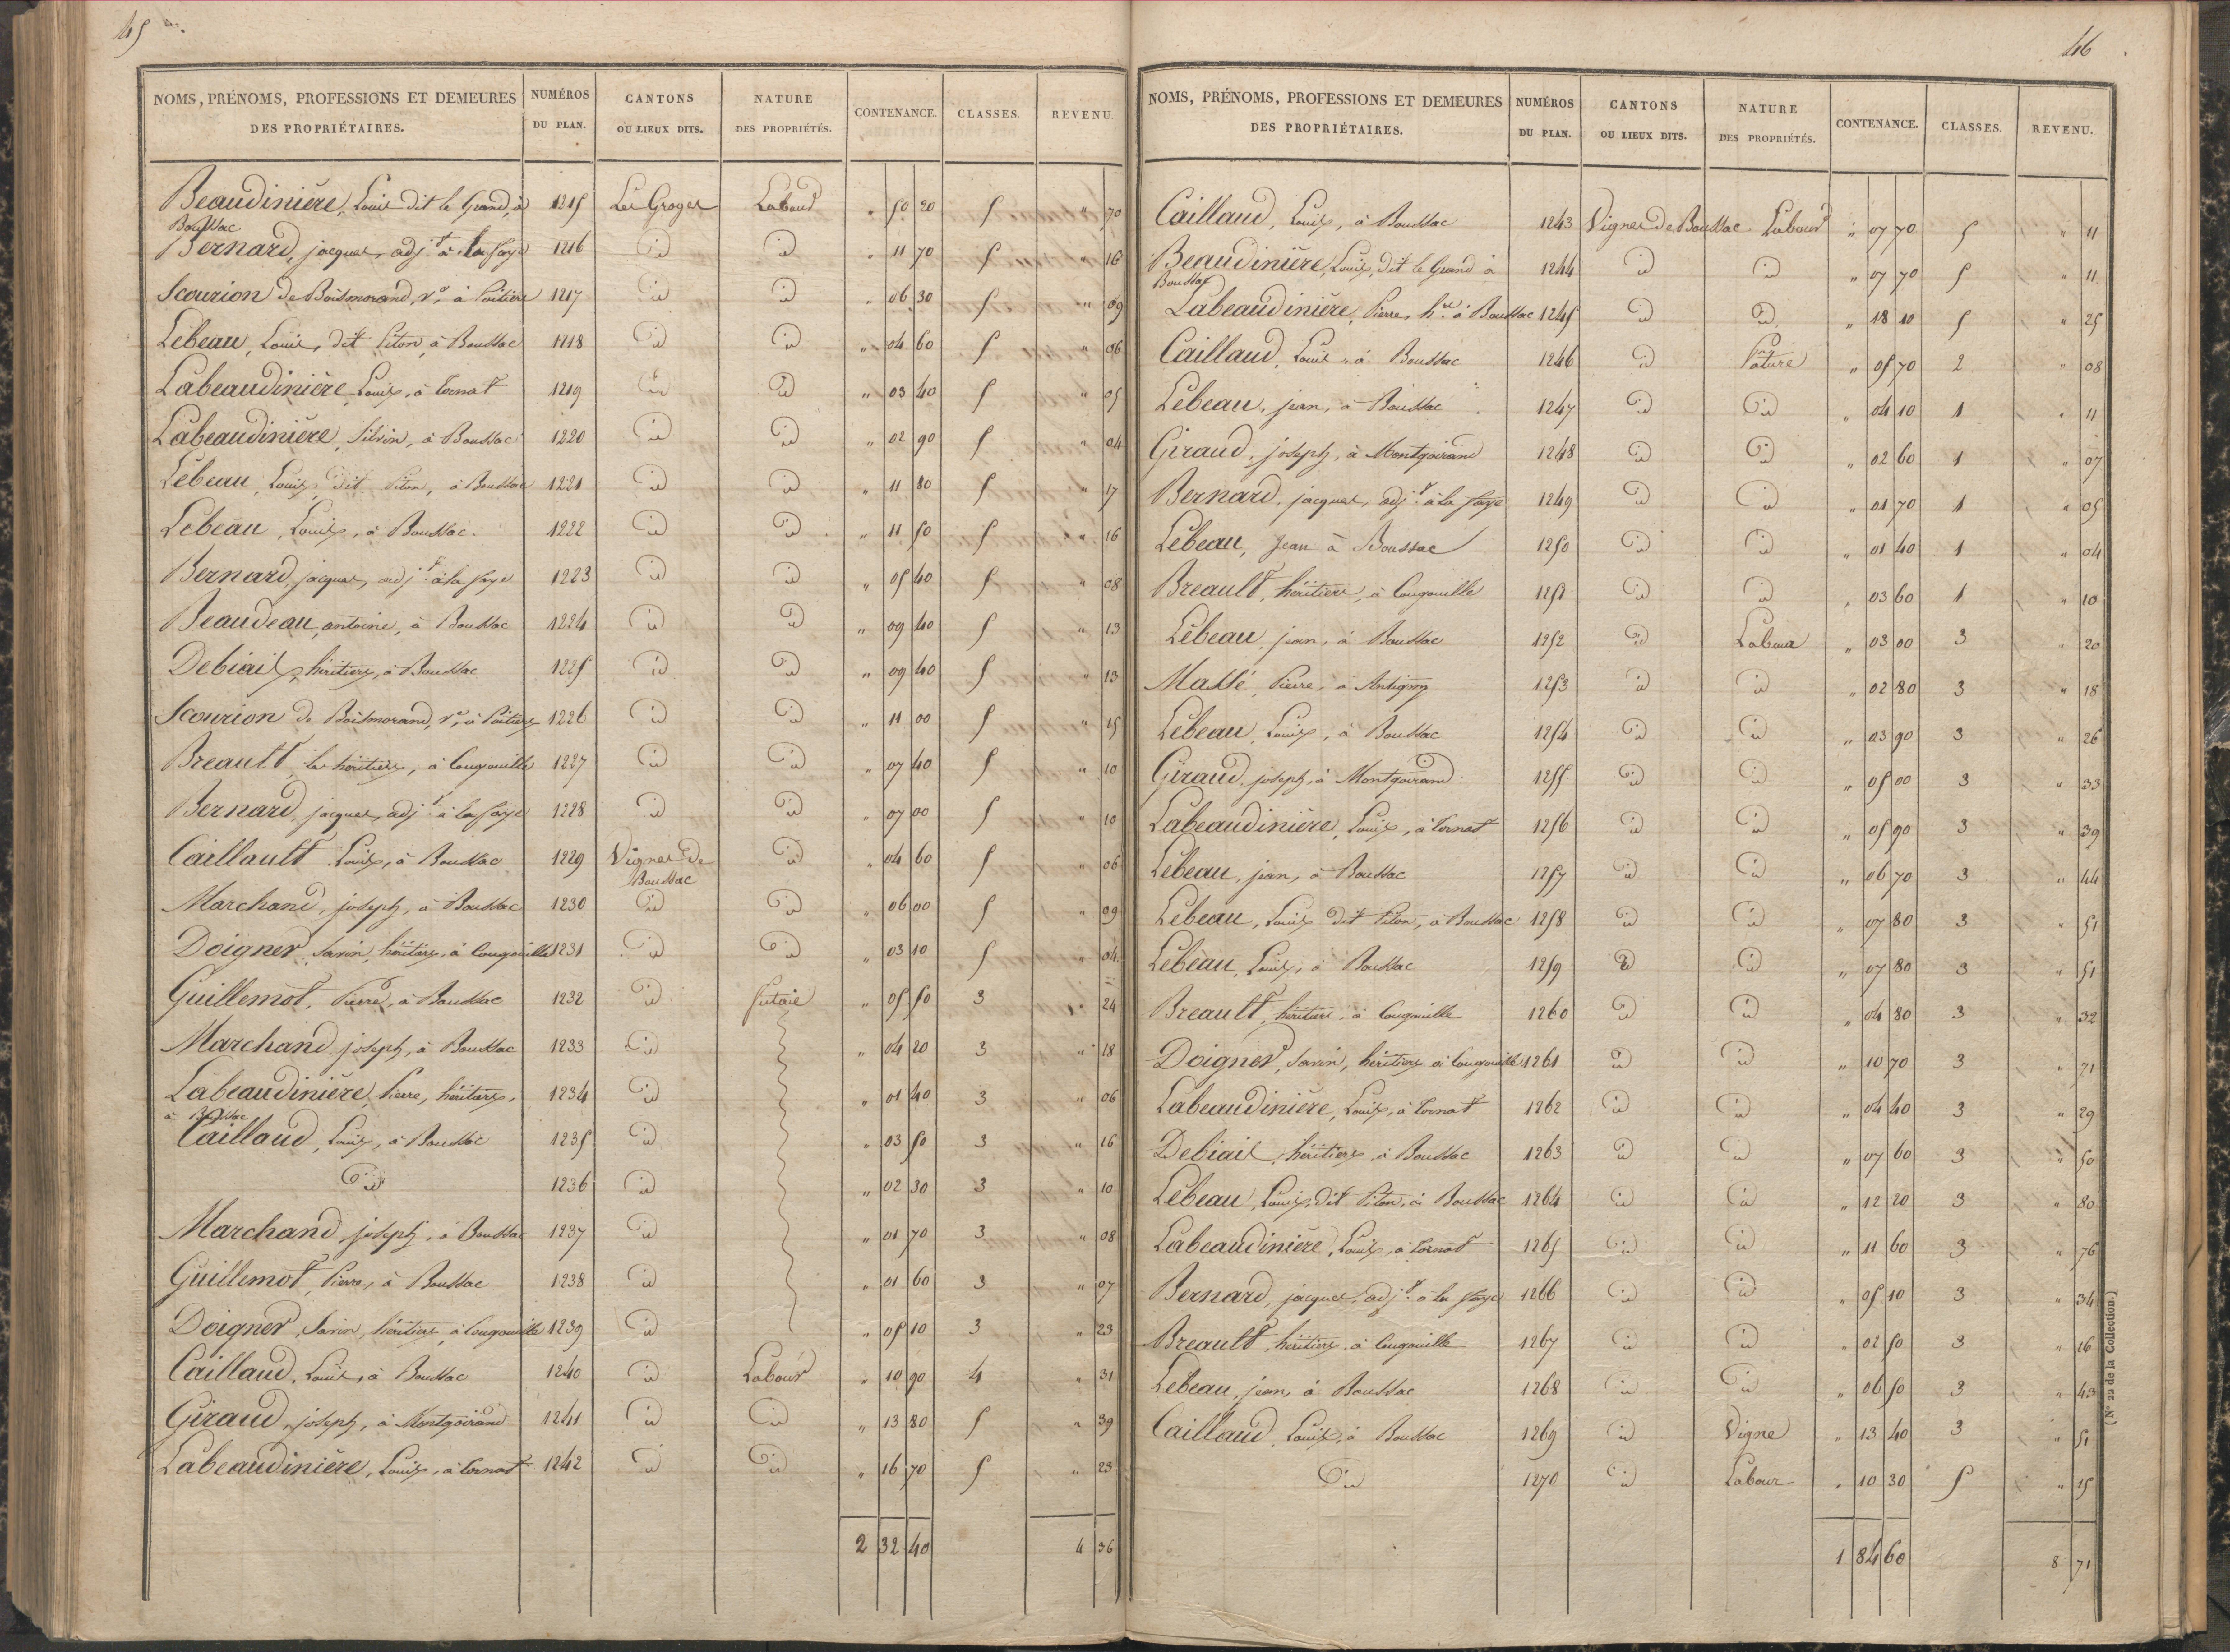 45
NOMS, PRÉNOMS, PROFESSIONS ET DEMEURES DES PROPRIÉTAIRES. NUMÉROS DU PLAN. CANTONS OU LIEUX DITS. NATURE DES PROPRIÉTÉS. CONTENANCE. CLASSES. REVENU.
Beaudinière, Louis dit le Grand, à Boussac 1215 Les Groges Labour " 50 20 5 " 70
Bernard, jacques, adjt. à la faye 1216 id id " 11 70 5 " 16
Scourion de Boismorand, ve. à Poitiers 1217 id id " 06 30 5 " 09
Lebeau, Louis, dit Piton, à Boussac 1218 id id " 04 60 5 " 06
Labeaudinière, Louis, à Tornat 1219 id id " 03 40 5 " 05
Labeaudinière, Silvin, à Boussac 1220 id id " 02 90 5 " 04
Lebeau, Louis, dit Piton, à Boussac 1221 id id " 11 80 5 " 17
Lebeau, Louis, à Boussac. 1222 id id " 11 50 5 " 16
Bernard, jacques, adjt. à la faye 1223 id id " 05 40 5 " 08
Beaudeau, antoine, à Boussac 1224 id id " 09 40 5 " 13
Debiail, héritiers, à Boussac 1225 id id " 09 40 5 " 13
Scourion de Boismorand, ve. à Poitiers 1226 id id " 11 00 5 " 15
Breault, les héritiers, à Cougouille 1227 id id " 07 40 5 " 10
Bernard, jacques, adjt. à la faye 1228 id id " 07 00 5 " 10
Caillault, Louis, à Boussac 1229 Vignes de Boussac id " 04 60 5 " 06
Marchand, joseph, à Boussac 1230 id id " 06 00 5 " 09
Doigner, Savin, héritiers, à Cougouille 1231 id id " 03 10 5 " 04
Guillemot, Pierre, à Boussac 1232 id futaie " 05 50 3 " 24
Marchand, joseph, à Boussac 1233 id " 04 20 3 " 18
Labeaudinière, Pierre, héritiers, à Boussac 1234 id " 01 40 3 " 06
Caillaud, Louis, à Boussac 1235 id " 03 50 3 " 16
id 1236 id " 02 30 3 " 10
Marchand, joseph, à Boussac 1237 id " 01 70 3 " 08
Guillemot, Pierre, à Boussac 1238 id " 01 60 3 " 07
Doigner, Savin, héritiers, à Cougouille 1239 id " 05 10 3 " 23
Caillaud, Louis, à Boussac 1240 id Labour " 10 90 4 " 31
Giraud, joseph, à Montgoirand 1241 id id " 13 80 5 " 39
Labeaudinière, Louis, à Tornat 1242 id id " 16 70 5 " 23
2 32 40 4 36
46
NOMS, PRÉNOMS, PROFESSIONS ET DEMEURES DES PROPRIÉTAIRES. NUMÉROS DU PLAN. CANTONS OU LIEUX DITS. NATURE DES PROPRIÉTÉS. CONTENANCE. CLASSES. REVENU.
Caillaud, Louis, à Boussac 1243 Vignes de Boussac Labour " 07 70 5 " 11
Beaudinière, Louis, dit le Grand à Boussac 1244 id id " 07 70 5 " 11
Labeaudinière, Pierre, hers. à Boussac 1245 id id " 18 10 5 " 25
Caillaud, Louis, à Boussac 1246 id Pâture " 05 70 2 " 08
Lebeau, jean, à Boussac 1247 id id " 04 10 1 " 11
Giraud, joseph, à Montgoirand 1248 id id " 02 60 1 " 07
Bernard, jacques, adjt. à la faye 1249 id id " 01 70 1 " 05
Lebeau, Jean à Boussac 1250 id id " 01 40 1 " 04
Breault, héritiers, à Cougouille 1251 id id " 03 60 1 " 10
Lebeau, jean, à Boussac 1252 id Labour " 03 00 3 " 20
Massé, Pierre, à Antigny 1253 id id " 02 80 3 " 18
Lebeau, Louis, à Boussac 1254 id id " 03 90 3 " 26
Giraud, joseph, à Montgoirand 1255 id id " 05 00 3 " 33
Labeaudinière, Louis, à Tornat 1256 id id " 05 90 3 " 39
Lebeau, jean, à Boussac 1257 id id " 06 70 3 " 44
Lebeau, Louis dit Piton, à Boussac 1258 id id " 07 80 3 " 51
Lebeau, Louis, à Boussac 1259 id id " 07 80 3 " 51
Breault, héritiers, à Cougouille 1260 id id " 04 80 3 " 32
Doigner, Savin, héritiers à Cougouille 1261 id id " 10 70 3 " 71
Labeaudinière, Louis, à Tornat 1262 id id " 04 40 3 " 29
Debiail, héritiers, à Boussac 1263 id id " 07 60 3 " 50
Lebeau, Louis, dit Piton, à Boussac 1264 id id " 12 20 3 " 80
Labeaudinière, Louis, à Tornat 1265 id id " 11 60 3 " 76
Bernard, jacques, adjt. à la faye 1266 id id " 05 10 3 " 34
Breault, héritiers, à Cougouille 1267 id id " 02 50 3 " 16
Lebeau, jean, à Boussac 1268 id id " 06 50 3 " 43
Caillaud, Louis, à Boussac 1269 id Vigne " 13 40 3 " 51
id 1270 id Labour " 10 30 5 " 15
1 84 60 8 71
(N° 22 de la Collection.)